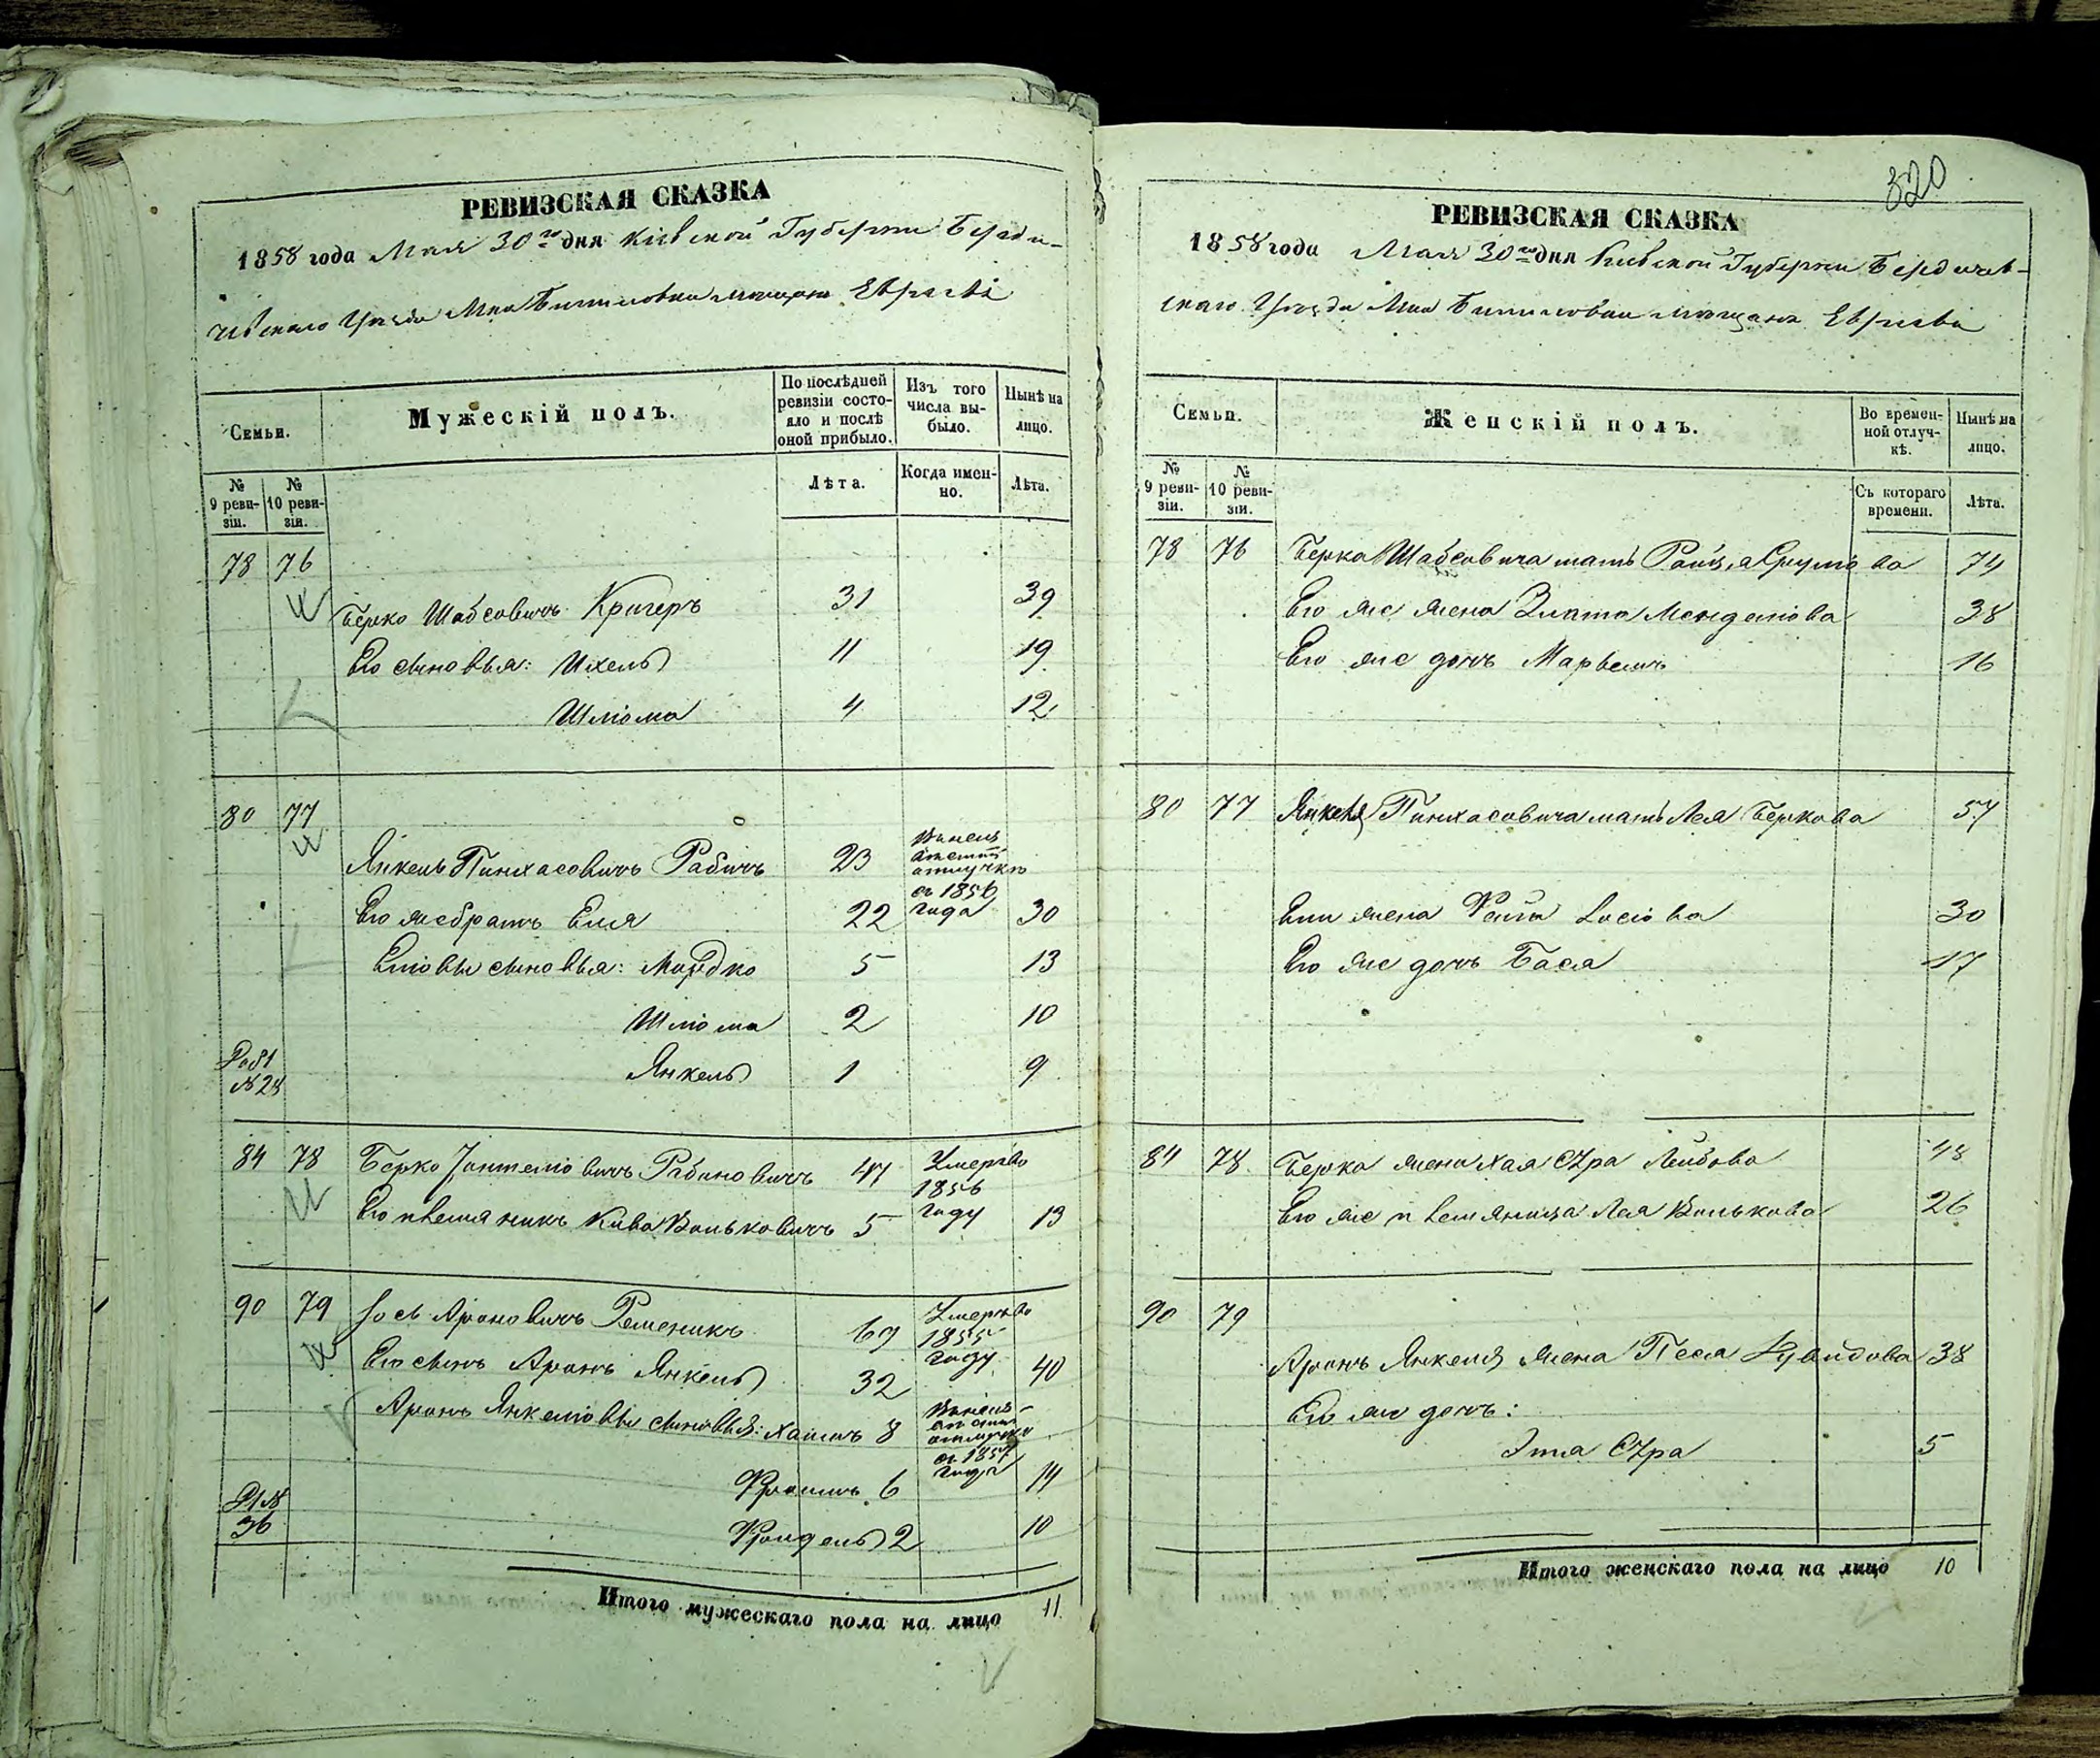 РЕВИЗСКАЯ СКАЗКА
1858 года Мая 30го дня Кіевской Губерніи Берди-
чевскаго Уѣзда Мка мещанъ Евреевъ
Семьи.
Мужескій полъ.
По послѣдней ревизіи состо-
яло и послѣ
оной прибыло.
Изъ того
числа вы-
было.
Нынѣ на
лицо.
№
9 реви-
зіи.
№
10 реви-
зіи.
Лѣта.
Когда имен-
но.
Лѣта.
78 76
Берко Шабсовичъ Кригеръ 31 39
Его сыновья: Ихель 11 19
Шліома 4 12
80 77
Янкель Пинхасовичъ Рабичъ 23
отлучкѣ
съ 1856
года
Его же братъ Еля 22 30
Еліовы сыновья: Мордко 5 13
Шліома 2 10
Янкель 1 9
№ 24
84 78 Берко Рабиновичъ 47 Умеръ въ
1856
году
Его племянникъ Кива Вольковичъ 5 13
90 79 Іось Ароновичъ Ременикъ 67 Умеръ въ
1855
году
Его сынъ Аронъ Янкель 32 40
Аронъ Янкеліовы сыновья: Хаимъ 8
отлучке
съ 1857
года
Фроимъ 6 14
Фроидель 2 10
36
Итого мужескаго пола на лицо 11
320
РЕВИЗСКАЯ СКАЗКА
1858 года Мая 30го дня Кіевской Губерніи Бердичев-
скаго Уѣзда Мка мещанъ Евреевъ
Семьи.
Женскій полъ.
Во времен-
ной отлуч-
кѣ.
Нынѣ на
лицо.
№
9 реви-
зіи.
№
10 реви-
зіи.
Съ котораго
времени.
Лѣта.
78 76 Берка Шабсовича мать Ройза Сруліова 74
Его же жена Злата Менделіова 38
Его же дочь Марьемъ 16
80 77 Янкеля Пинхасовича мать Лея Беркова 57
Ели жена Фейга Іосіова 30
Его же дочь Бася 17
84 78 Берка жена Хая Сура Лейбова 48
Его же племяница Лея Волькова 26
90 79
Аронъ Янкеля жена Песя 38
Его же дочь:
Этта Сура 5
Итого женскаго пола на лицо 10